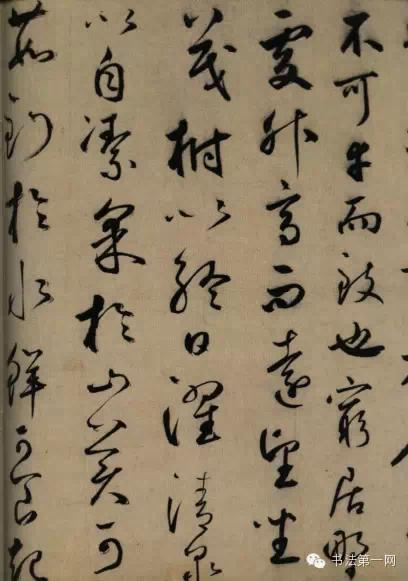 不可幸而致也窮居野
處升高而遠望坐
茂樹以終日濯清泉
以自潔采於山美可
茹釣於水鮮可食起
书法第一网